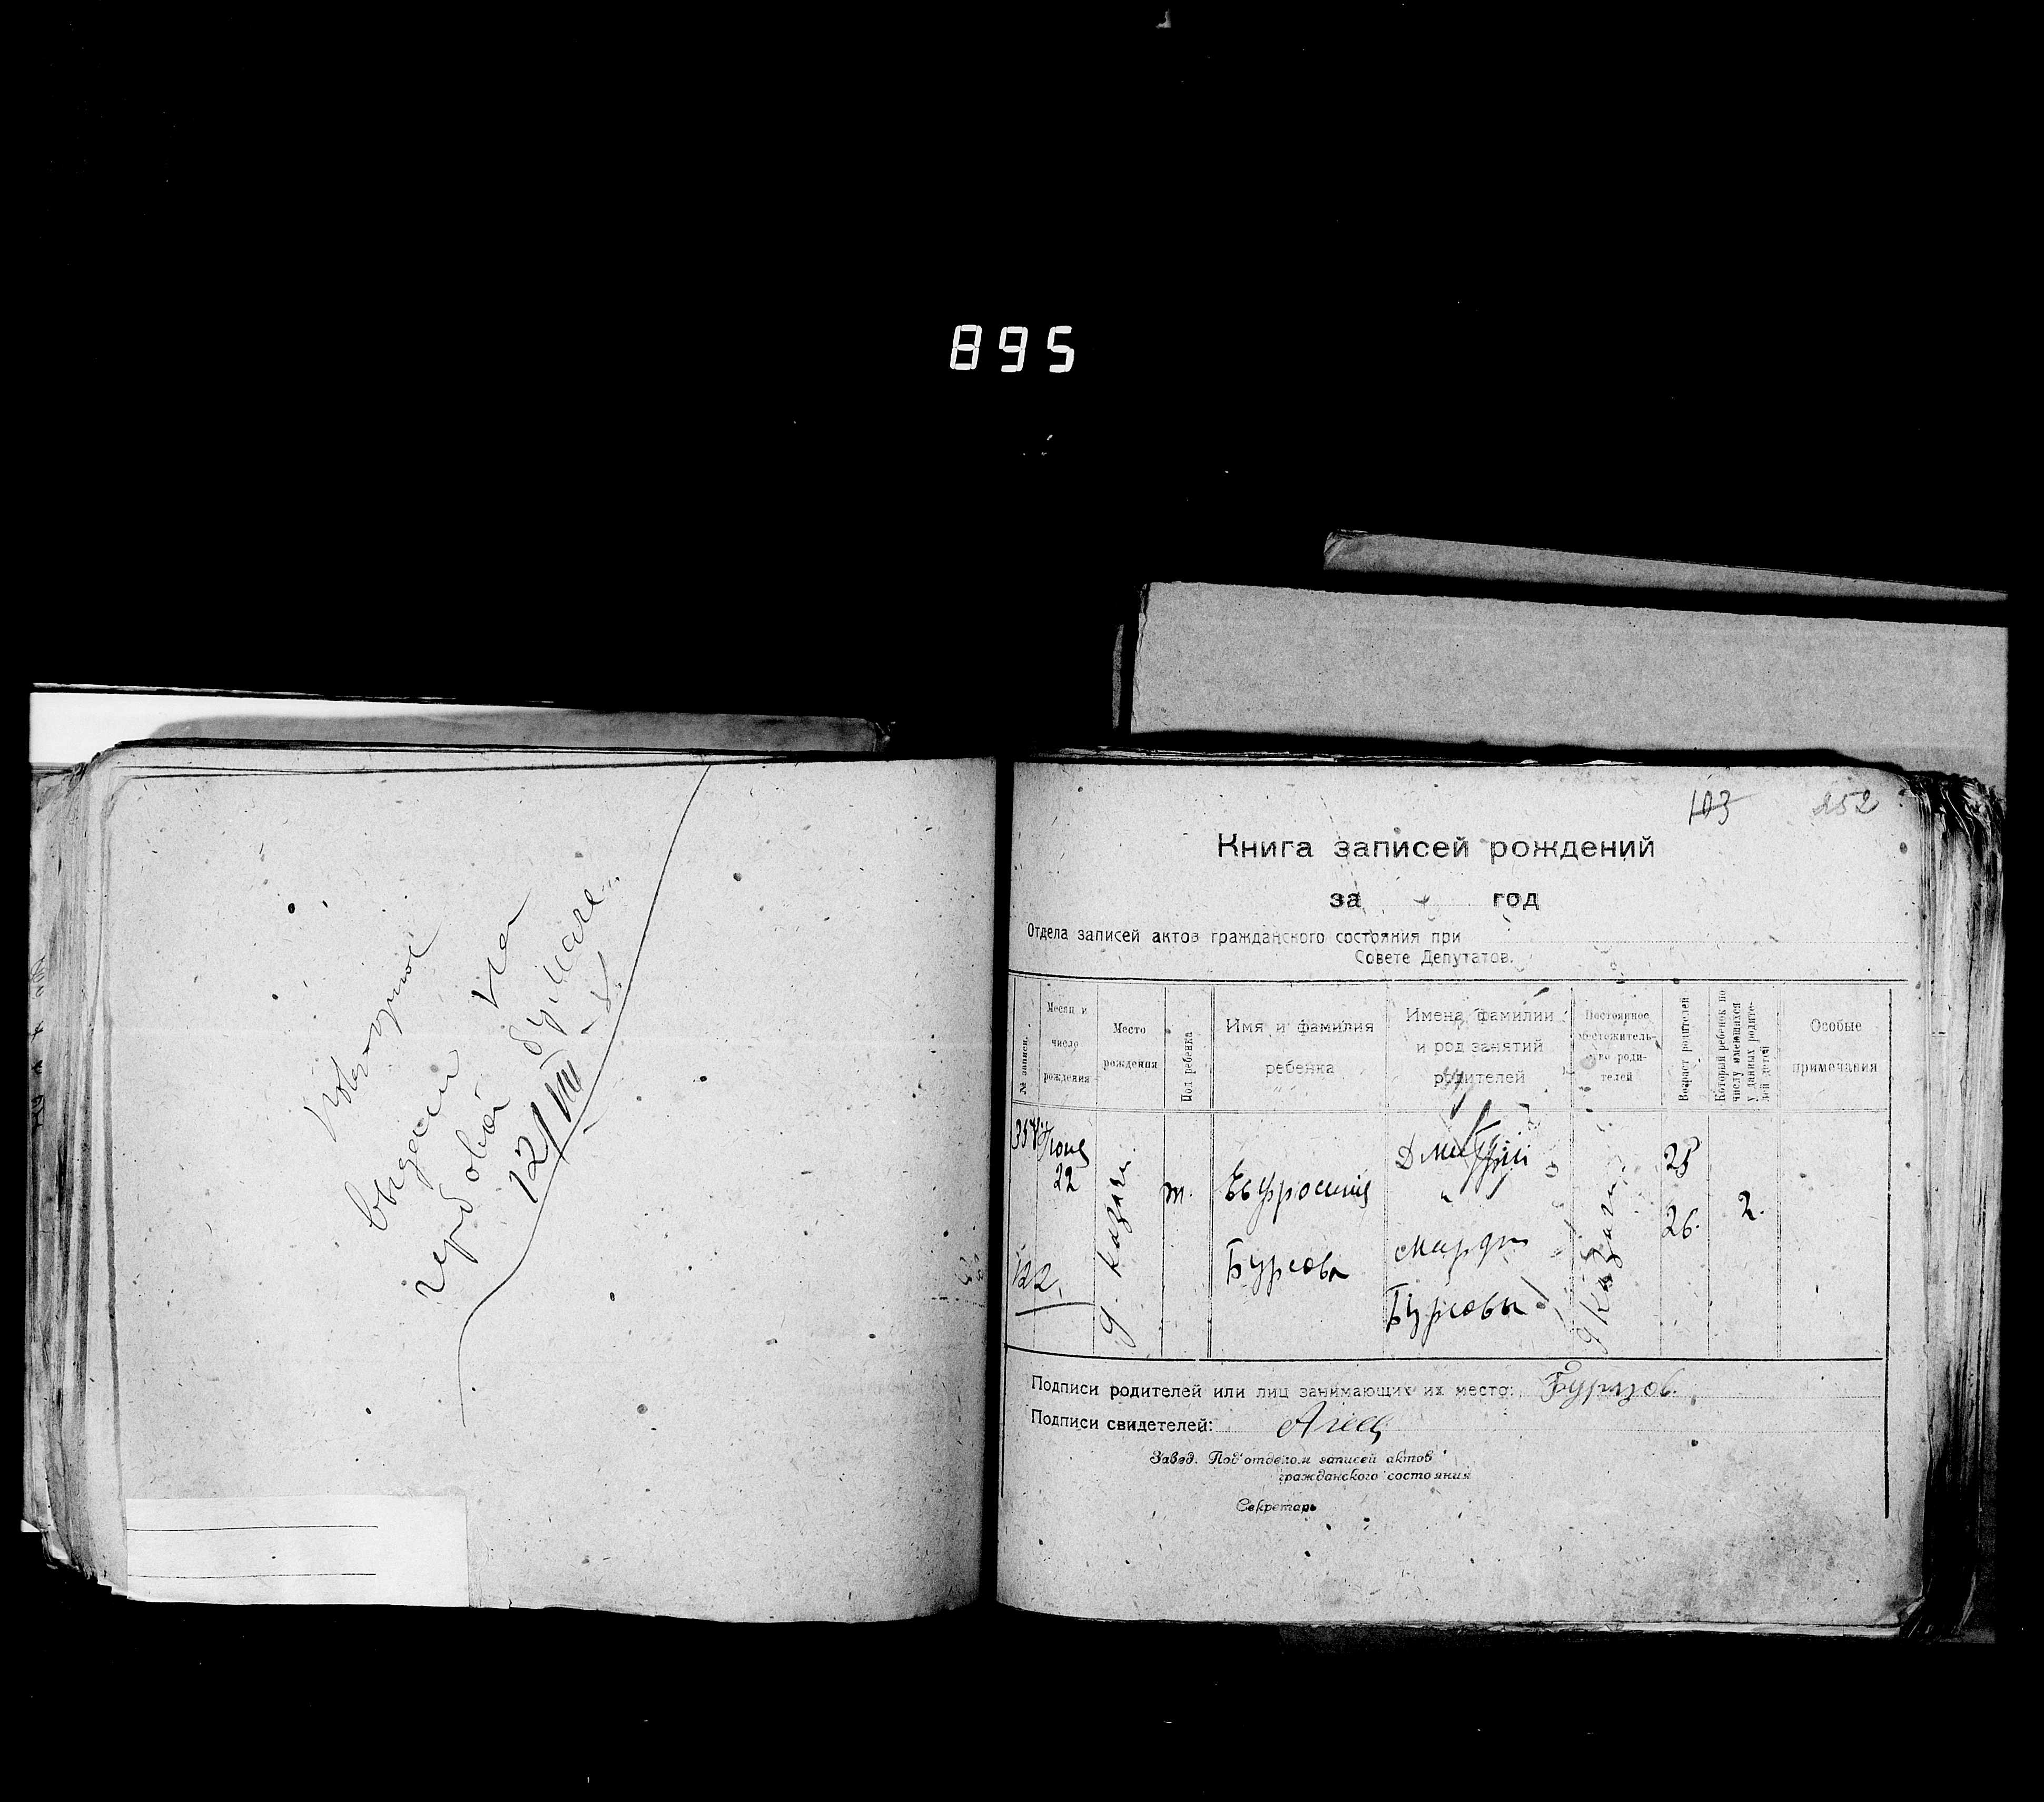 895
выдан на
гербовой бумаге
12/VIII
103 252
Книга записей рождений
за год
Отдела записей актов гражданского состояния при
Совете Депутатов.
№ записи.
Месяц и число рождения
Место рождения
Пол ребенка
Имя и фамилия ребенка
Имена, фамилии и род занятий родителей
Постоянное местожительство родителей
Возраст родителей
Который ребенок по числу имеющихся у данных родителей детей
Особые примечания
Июня
22
122
д. Казачи.
Ефросиния
Бурсова
Дмитрий
Марфа
Бурсовы
д Казачи.
25
26.
2.
Подписи родителей или лиц занимающих их место:
Подписи свидетелей:
Завед. Под'отделом записей актов
гражданского состояния
Секретарь